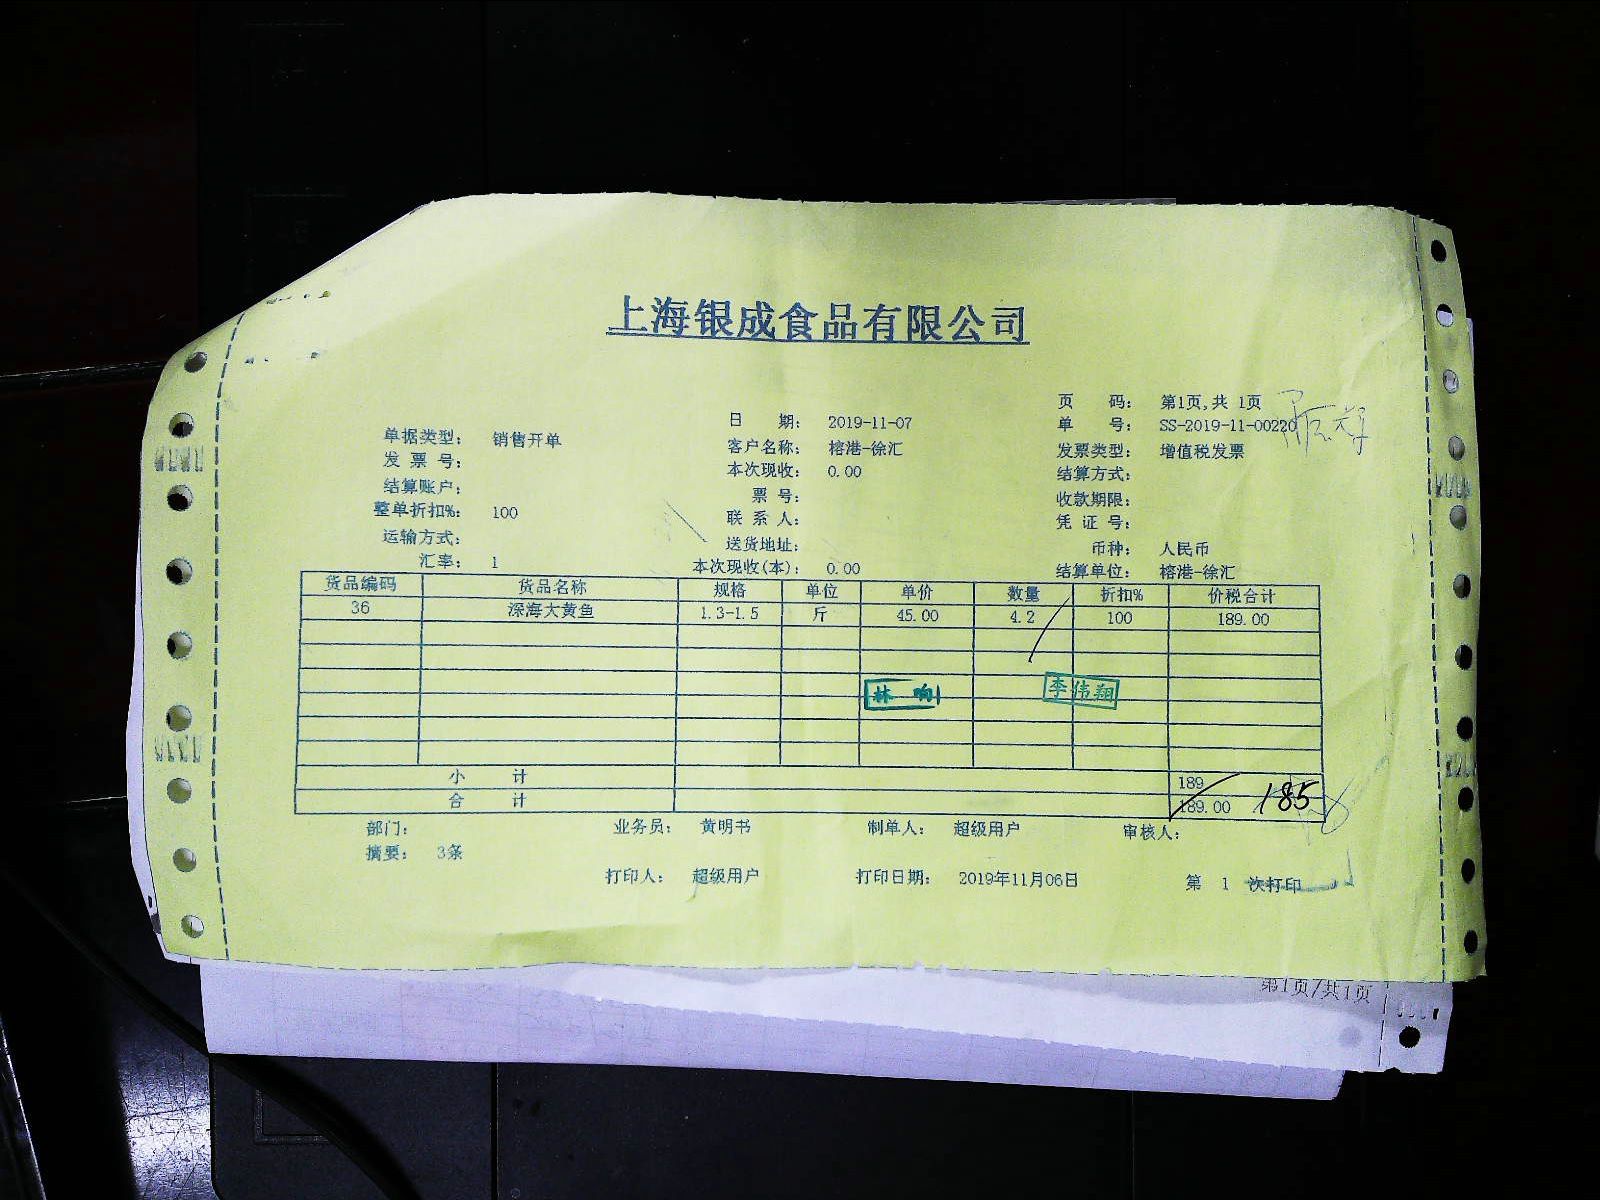 上海银成食品有限公司
页 码： 第1页,共 1页
日 期： 2019-11-07 单 号： SS-2019-11-00220
单据类型： 销售开单 客户名称： 榕港-徐汇 发票类型： 增值税发票
发 票 号： 本次现收： 0.00 结算方式：
结算账户： 票 号： 收款期限：
整单折扣%： 100 联 系 人： 凭 证 号：
运输方式： 送货地址： 币种： 人民币
汇率： 1 本次现收(本)： 0.00 结算单位： 榕港-徐汇
货品编码 货品名称 规格 单位 单价 数量 折扣% 价税合计
36 深海大黄鱼 1.3-1.5 斤 45.00 4.2 100 189.00
林 响 李伟翔
小 计 189
合 计 189.00 185
部门： 业务员： 黄明书 制单人： 超级用户 审核人：
摘要： 3条
打印人： 超级用户 打印日期： 2019年11月06日 第 1 次打印
第1页/共1页